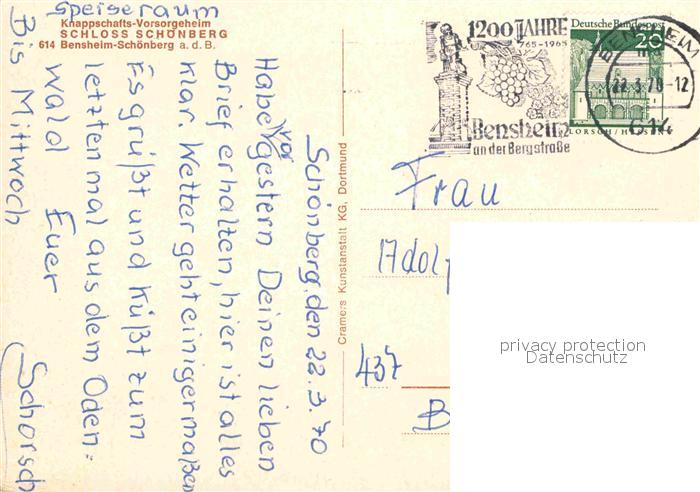 speiseraum
Knappschafts-Vorsorgeheim
SCHLOSS SCHÖNBERG
614 Bensheim-Schönberg a.d.B.
Schönberg, den 22.3.70
Habe vorgestern Deinen lieben
Brief erhalten, hier ist alles
klar. Wetter geht einigermaßen
Es grüßt und küßt zum
letzten mal aus dem Oden=
wald Euer
Schorsch
Bis Mittwoch
Cramers Kunstanstalt KG, Dortmund
1200 JAHRE
765-1965
Bensheim
an der Bergstraße
Deutsche Bundespost
20
LORSCH/HESSEN
BENSHEIM
22.3.70-12
614
Frau
437
B
privacy protection
Datenschutz